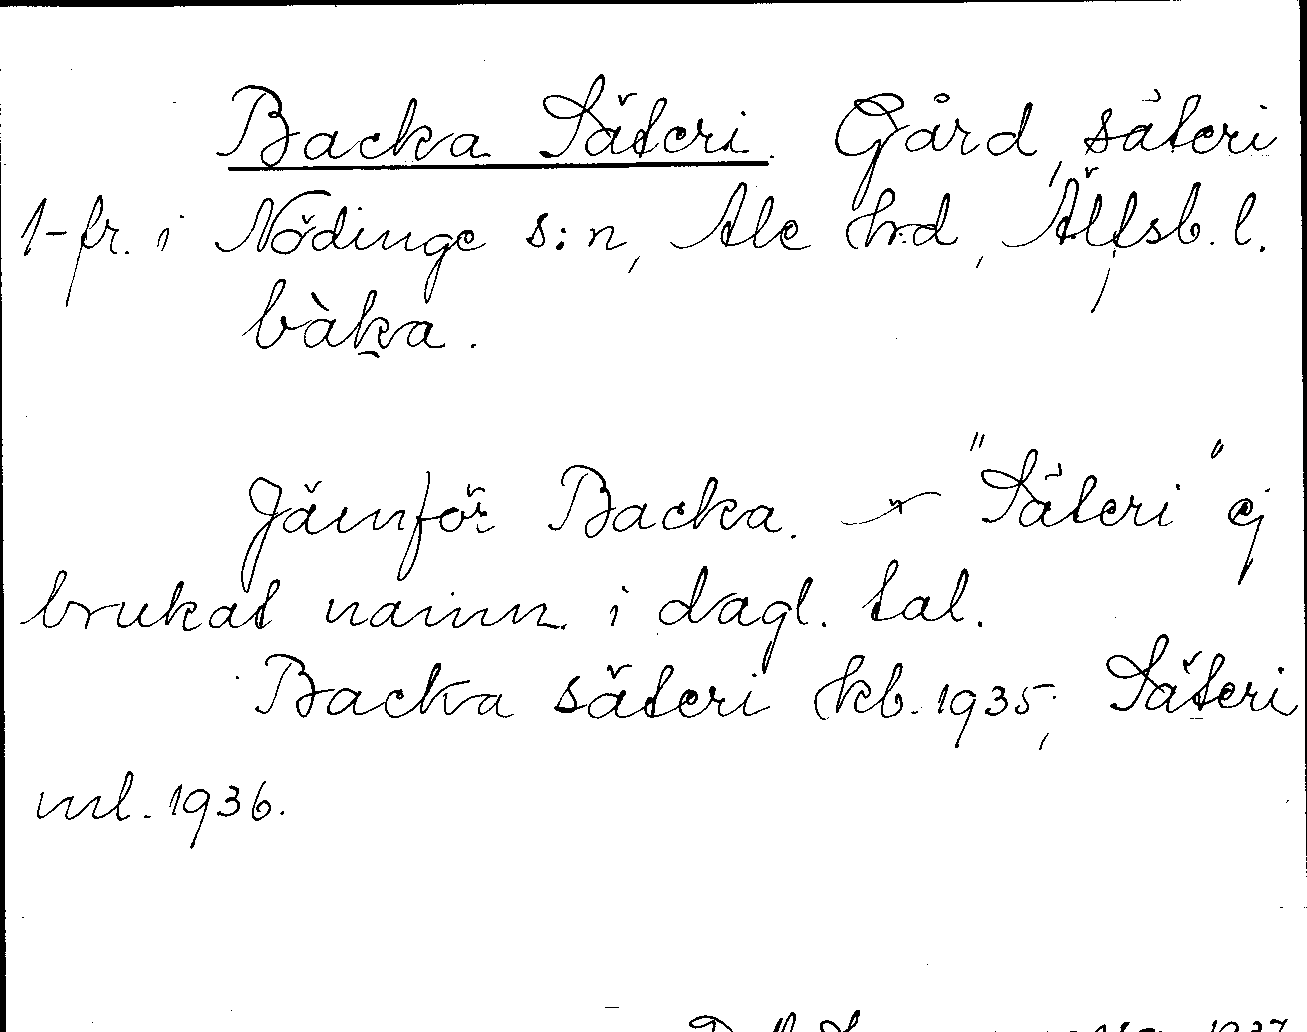 Backa Säteri. Gård, säteri
1-fr. i Nödinge s:n, Ale hrd, Älfsb. l.
bàka.
Jämför Backa. - "Säteri" ej
brukat namn i dagl. tal.
Backa säteri kb. 1935; Säteri
ml. 1936.
1937